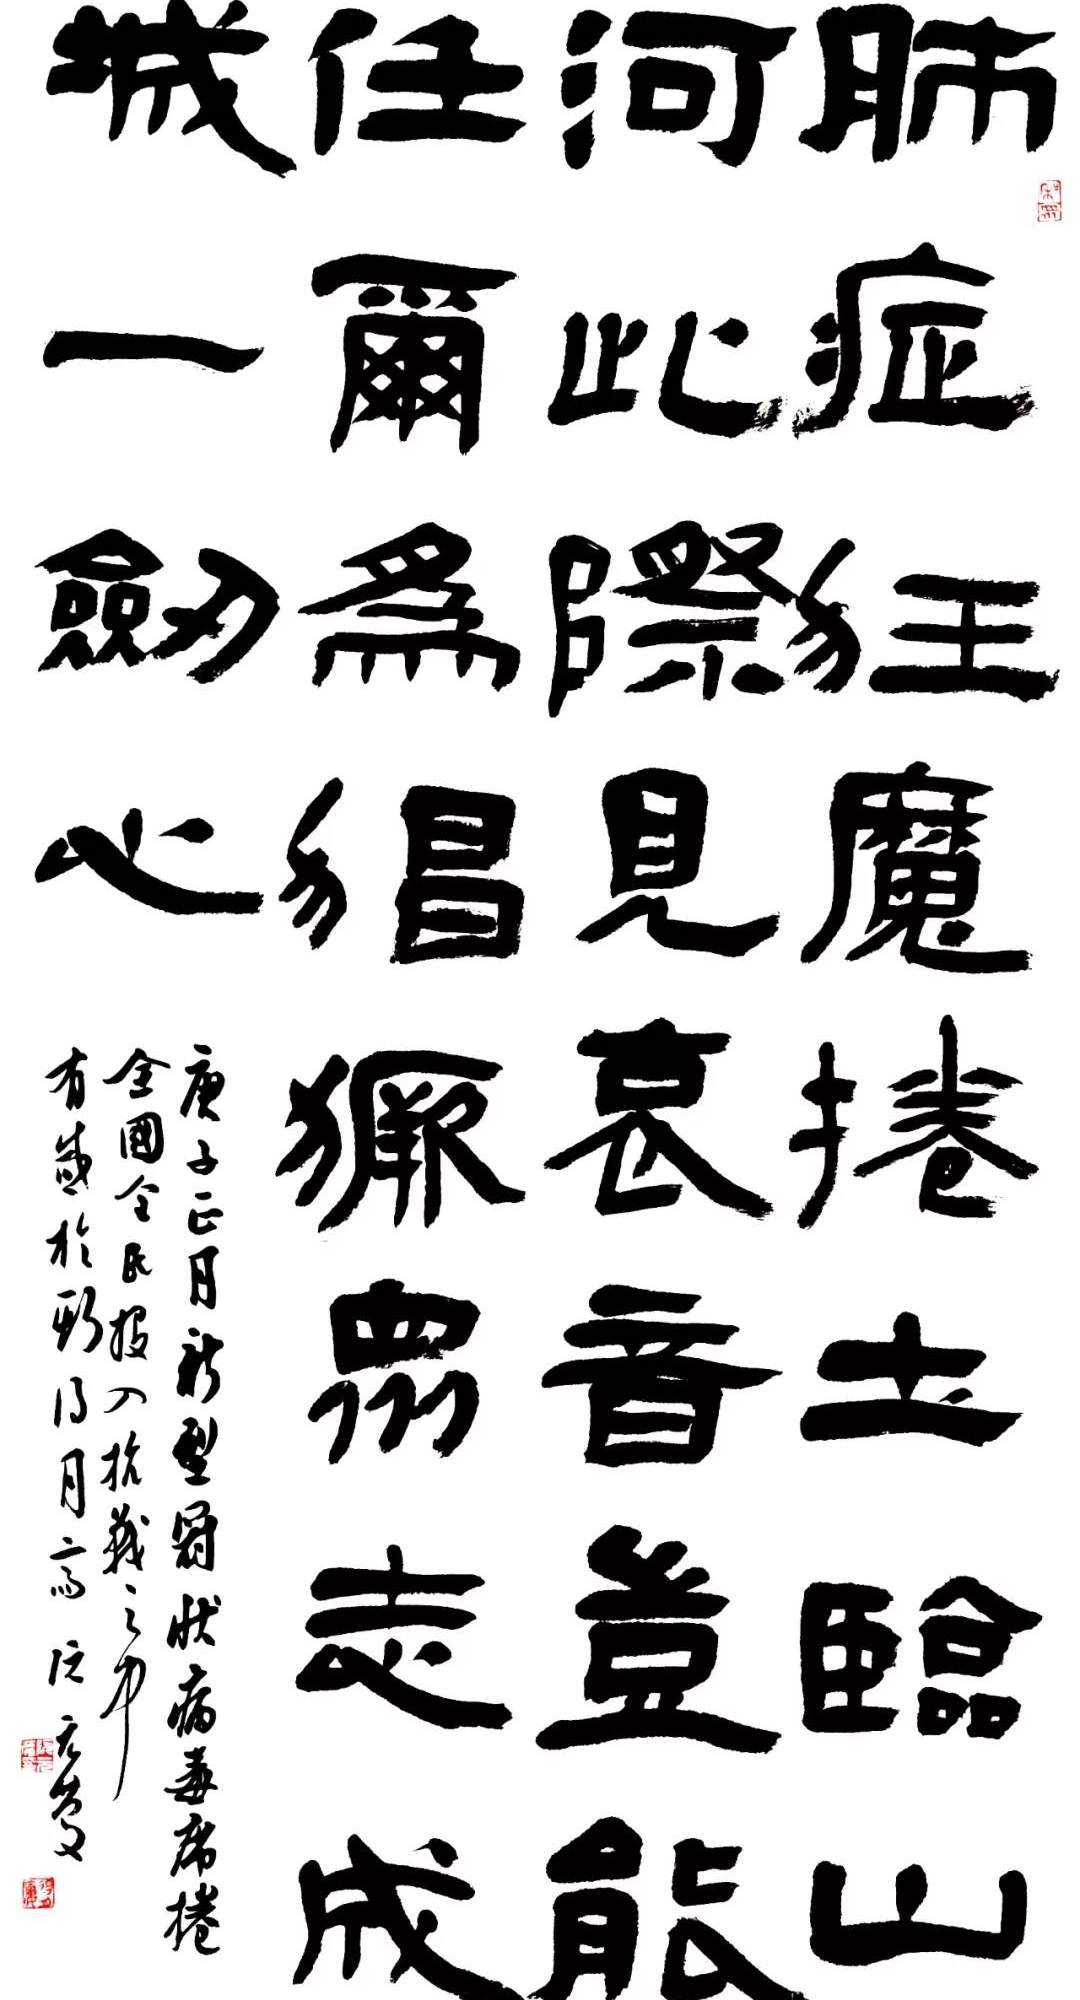 肺症狂魔捲土臨山
河此際見哀音豈能
任爾為猖獗眾志成
城一劍心
庚子正月新型冠狀病毒席捲
全國全民投入抗戰之中
有感於醉月齋